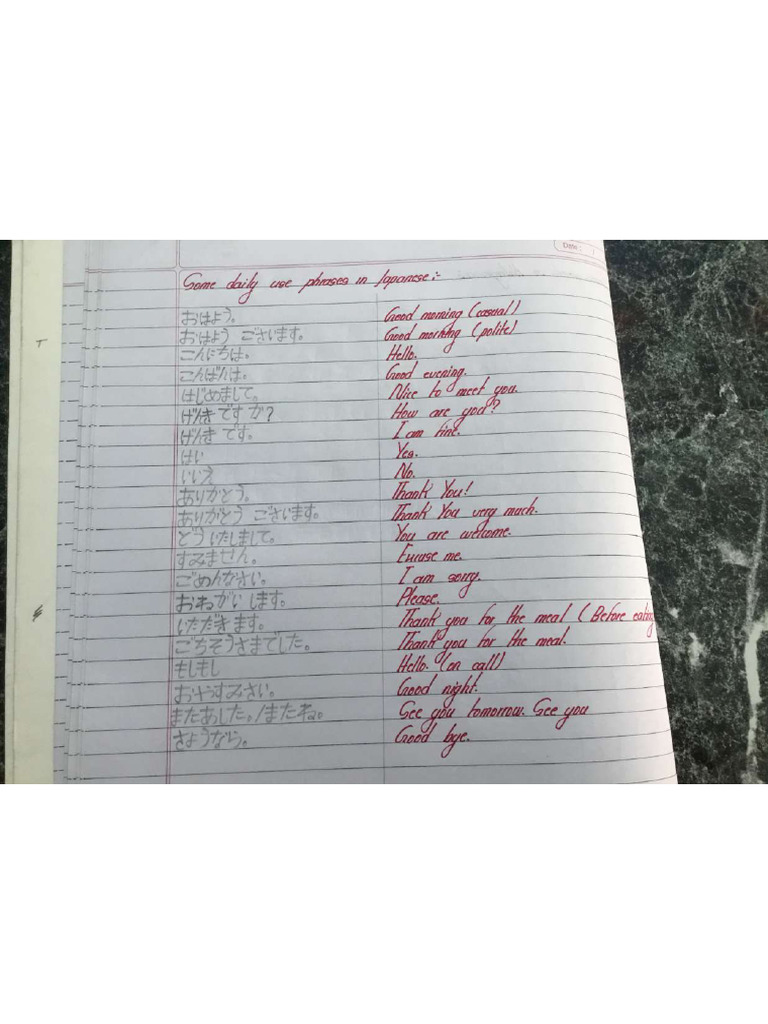 Date: /
Some daily use phrases in Japanese:-
おはよう。 Good morning (casual)
おはよう ございます。 Good morning (polite)
こんにちは。 Hello.
こんばんは。 Good evening.
はじめまして。 Nice to meet you.
げんき です か? How are you?
げんき です。 I am fine.
はい Yes.
いいえ No.
ありがとう。 Thank You!
ありがとう ございます。 Thank You very much.
どういたしまして。 You are welcome.
すみません。 Excuse me.
ごめんなさい。 I am sorry.
おねがい します。 Please.
いただきます。 Thank you for the meal (Before eating
ごちそうさまでした。 Thank you for the meal.
もしもし Hello. (on call)
おやすみさい。 Good night.
またあした。/またね。 See you tomorrow. See you
さようなら。 Good bye.